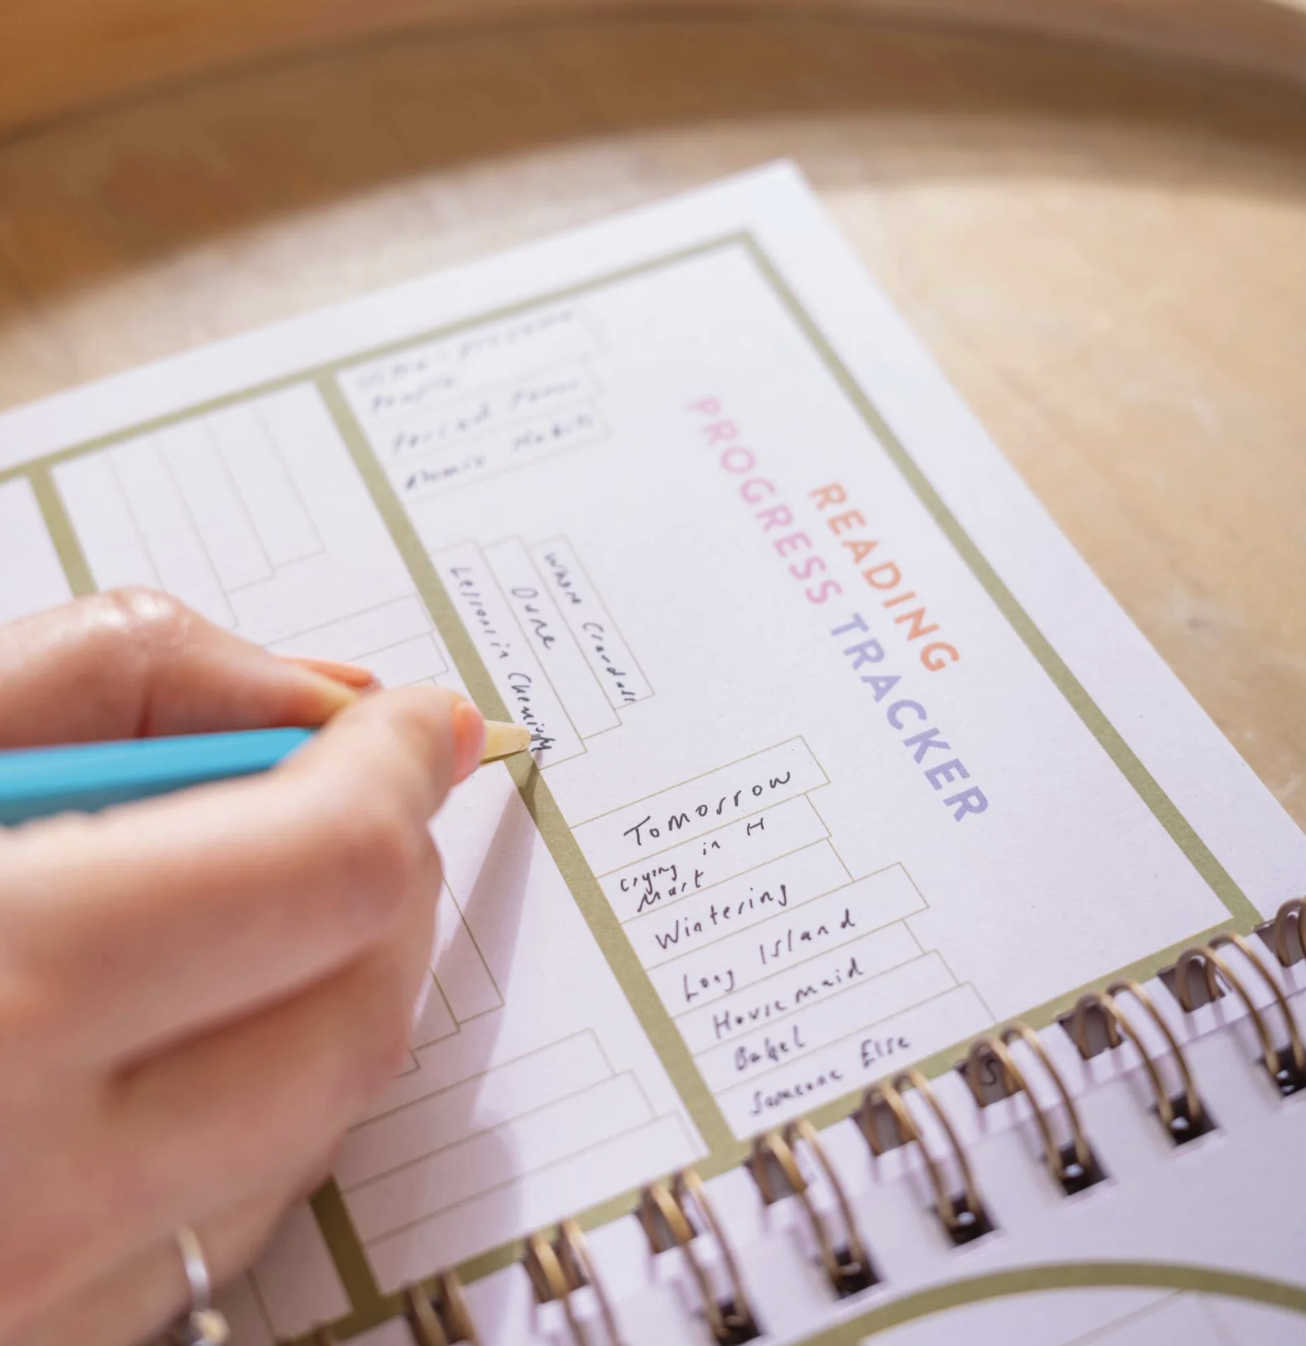 READING
PROGRESS TRACKER
Period Power
Atomic Habits
Lessons in Chemistry
Dune
Where Crawdads
Tomorrow
Crying in H
Mart
Wintering
Long Island
Housemaid
Someone Else